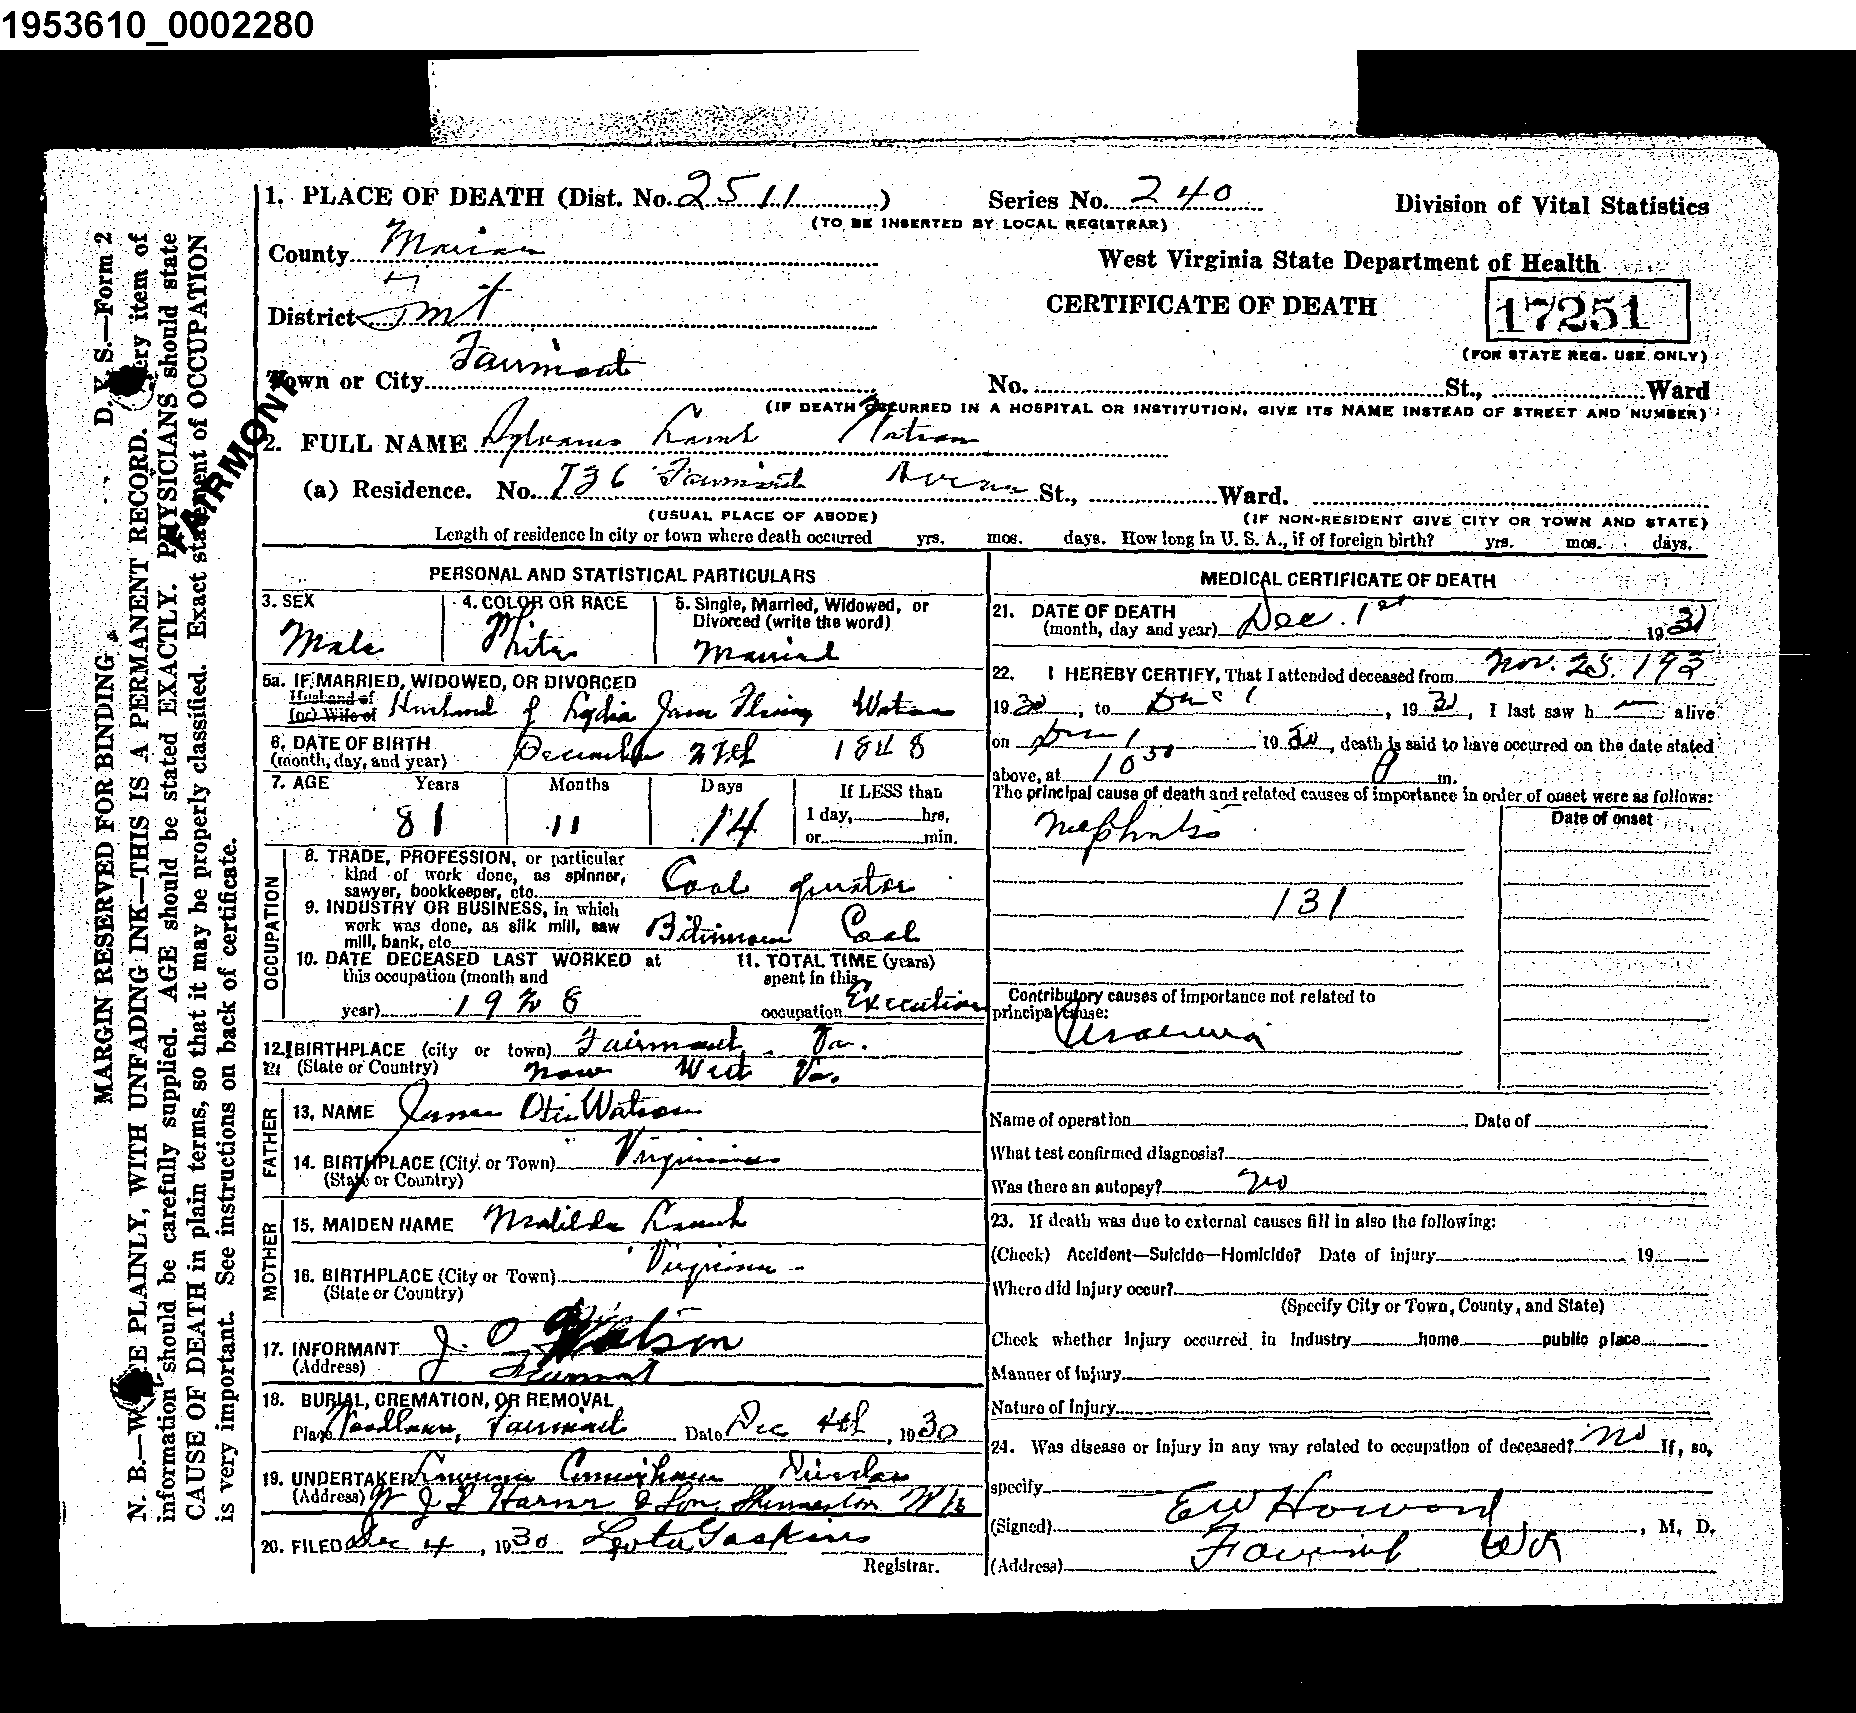 1953610_0002280
1. PLACE OF DEATH (Dist. No. 2511) Series No. 240 Division of Vital Statistics
(TO BE INSERTED BY LOCAL REGISTRAR)
County Marion West Virginia State Department of Health
District Fmt CERTIFICATE OF DEATH 17251
(FOR STATE REG. USE ONLY)
Town or City Fairmont No. St., Ward
(IF DEATH OCCURRED IN A HOSPITAL OR INSTITUTION, GIVE ITS NAME INSTEAD OF STREET AND NUMBER)
FAIRMONT
2. FULL NAME Sylvanus Lamb Watson
(a) Residence. No. 736 Fairmont Avenue St., Ward.
(USUAL PLACE OF ABODE) (IF NON-RESIDENT GIVE CITY OR TOWN AND STATE)
Length of residence in city or town where death occurred yrs. mos. days. How long in U. S. A., if of foreign birth? yrs. mos. days.
PERSONAL AND STATISTICAL PARTICULARS
3. SEX 4. COLOR OR RACE 5. Single, Married, Widowed, or
Divorced (write the word)
Male White Married
5a. IF MARRIED, WIDOWED, OR DIVORCED
Husband of
(or) Wife of Husband of Lydia Jane Fleming Watson
6. DATE OF BIRTH
(month, day, and year) December 1848
7. AGE Years Months Days If LESS than
81 11 14 1 day, hrs.
or min.
OCCUPATION
8. TRADE, PROFESSION, or particular
kind of work done, as spinner,
sawyer, bookkeeper, etc. Coal
9. INDUSTRY OR BUSINESS, in which
work was done, as silk mill, saw
mill, bank, etc. Bituminous Coal
10. DATE DECEASED LAST WORKED at 11. TOTAL TIME (years)
this occupation (month and spent in this
year) 1928 occupation Executive
12. BIRTHPLACE (city or town) Fairmont. Va.
(State or Country) now West Va.
FATHER
13. NAME James Otis Watson
14. BIRTHPLACE (City or Town) Virginia
(State or Country)
MOTHER
15. MAIDEN NAME Matilda Lamb
16. BIRTHPLACE (City or Town) Virginia
(State or Country)
17. INFORMANT J. O. Watson
(Address) Fairmont
18. BURIAL, CREMATION, OR REMOVAL
Place Woodlawn, Fairmont Date Dec 4th, 1930
19. UNDERTAKER Cunningham
(Address) J L Harner & Son, Shinnston W Va
20. FILED Dec 4, 1930 Leota Gaskins
Registrar.
MEDICAL CERTIFICATE OF DEATH
21. DATE OF DEATH
(month, day and year) Dec. 1st 1930
22. I HEREBY CERTIFY, That I attended deceased from Nov. 25. 193
1930, to Dec 1, 1930, I last saw h alive
on Dec 1 1930, death is said to have occurred on the date stated
above, at 10 30 P m.
The principal cause of death and related causes of importance in order of onset were as follows:
Date of onset
Nephritis
131
Contributory causes of importance not related to
principal cause:
Uraemia
Name of operation Date of
What test confirmed diagnosis?
Was there an autopsy? no
23. If death was due to external causes fill in also the following:
(Check) Accident—Suicide—Homicide? Date of injury 19
Where did injury occur?
(Specify City or Town, County, and State)
Check whether injury occurred in industry home public place
Manner of injury
Nature of injury
24. Was disease or injury in any way related to occupation of deceased? no If, so,
specify
(Signed) E W Howard, M. D.
(Address) Fairmont W Va
D. V. S.—Form 2
MARGIN RESERVED FOR BINDING
N. B.—WRITE PLAINLY, WITH UNFADING INK—THIS IS A PERMANENT RECORD. Every item of
information should be carefully supplied. AGE should be stated EXACTLY. PHYSICIANS should state
CAUSE OF DEATH in plain terms, so that it may be properly classified. Exact statement of OCCUPATION
is very important. See instructions on back of certificate.